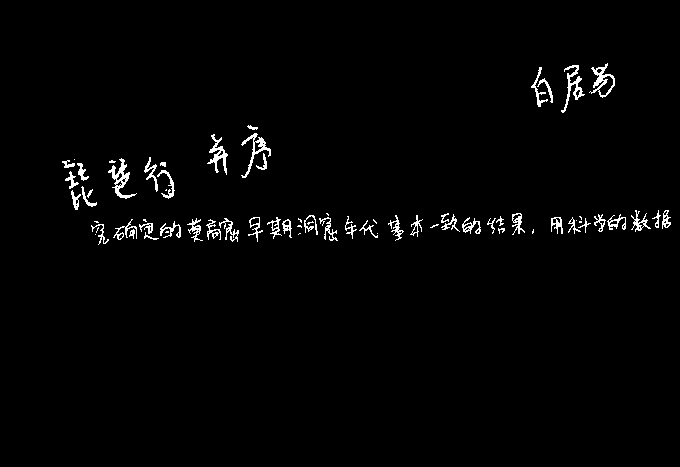 白居易
琵琶行 并序
究确定的莫高窟早期洞窟年代基本一致的结果，用科学的数据